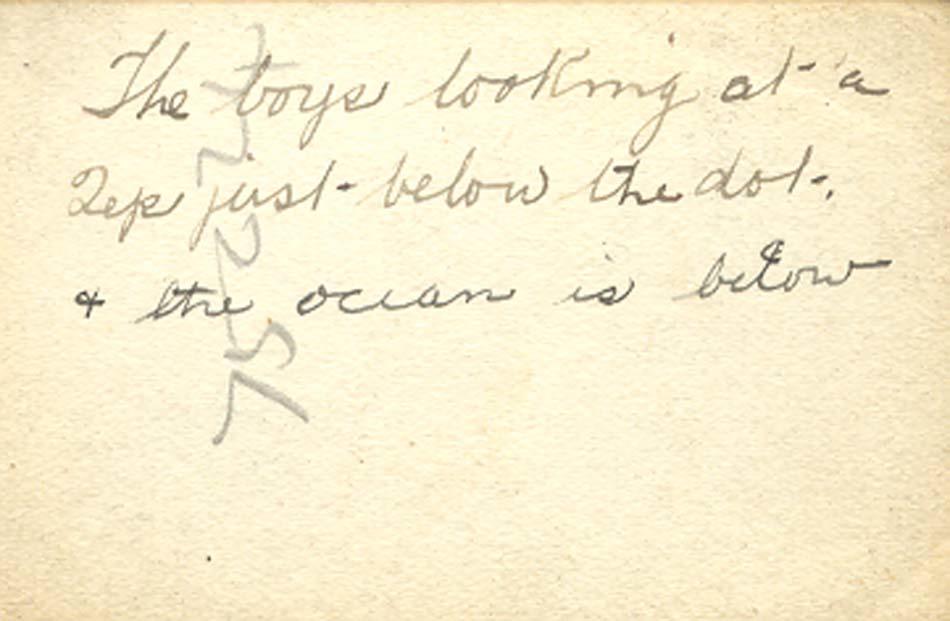 The boys looking at a
Zep just below the dot.
& the ocean is below